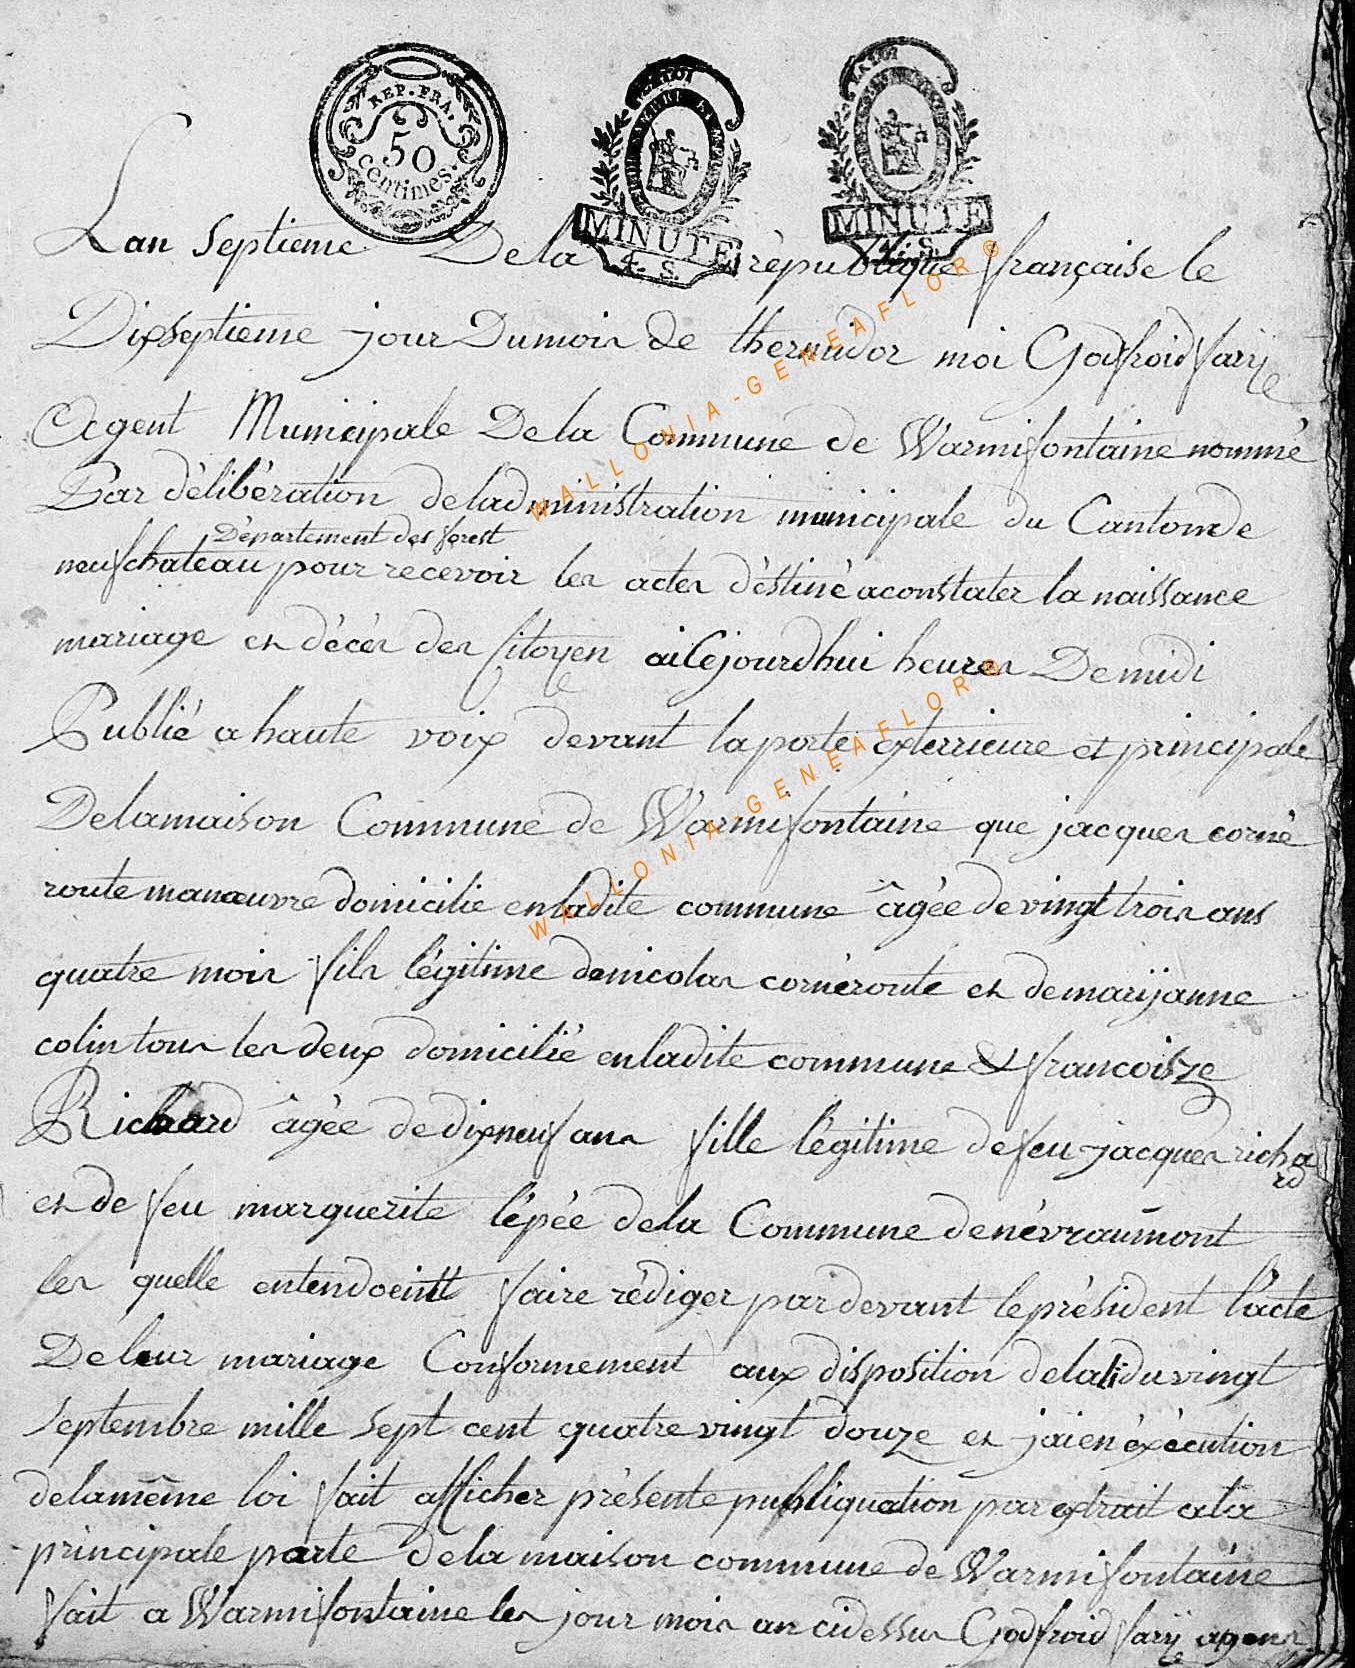 REP. FRA.
50
centimes.
LA LOI
MINUTE
4. S.
LA LOI
MINUTE
4. S.
Lan septieme De la république française le
Dixseptieme jour Dumois de thermidor moi Godfroid farÿe
Agent Municipale De la Commune de Warmifontaine nommé
Par délibération deladministration municipale du Cantonde
Département des forest
neufchateau pour recevoir les actes déstiné aconstater la naissance
mariage et décés des Citoyen ai Cejourdhui heures De midi
Publié a haute voix devant la porte exterrieure et principale
Delamaison Commune de Warmifontaine que jacques corné
route manœuvre domicilié enladite commune âgée de vingt trois ans
quatre mois fils légitime denicolas cornéroute et demarijanne
colin tous les deux domicilié enladite commune & francoisze
Richard âgée de dixneuf ans fille légitime de feu jacques richa
rd
et de feu marguerite lépée dela Commune denévraumont
les quelle entendoeintt faire rédiger pardevant leprésident lacte
De leur mariage Conformement aux disposition delaloi du vingt
septembre mille sept cent quatre vingt douze et jaien éxécution
delamême loi fait afficher présente publiquation par extrait ala
principale parte dela maison commune de Warmifontaine
fait a Warmifontaine les jour mois an cidessus Godfroid farÿe agent
WALLONIA-GENEAFLOR®
WALLONIA-GENEAFLOR®